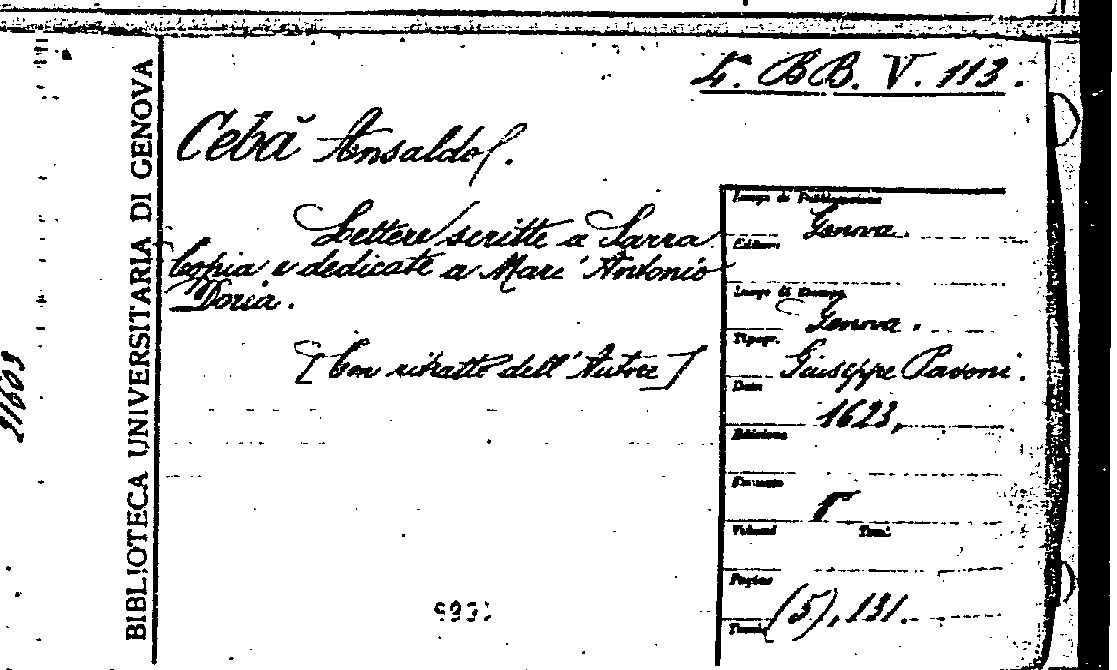 4. BB. V. 113.
Cebă Ansaldo.
Lettere scritte a Sarra
Copia e dedicate a Marc' Antonio
Doria.
[Con ritratto dell'Autore]
BIBLIOTECA UNIVERSITARIA DI GENOVA
Luogo di Pubblicazione
Genova.
Editore
Luogo di Stampa
Genova.
Tipogr.
Giuseppe Pavoni.
Data
1623,
Edizione
Formato
Volumi
Pagine
(5), 131.